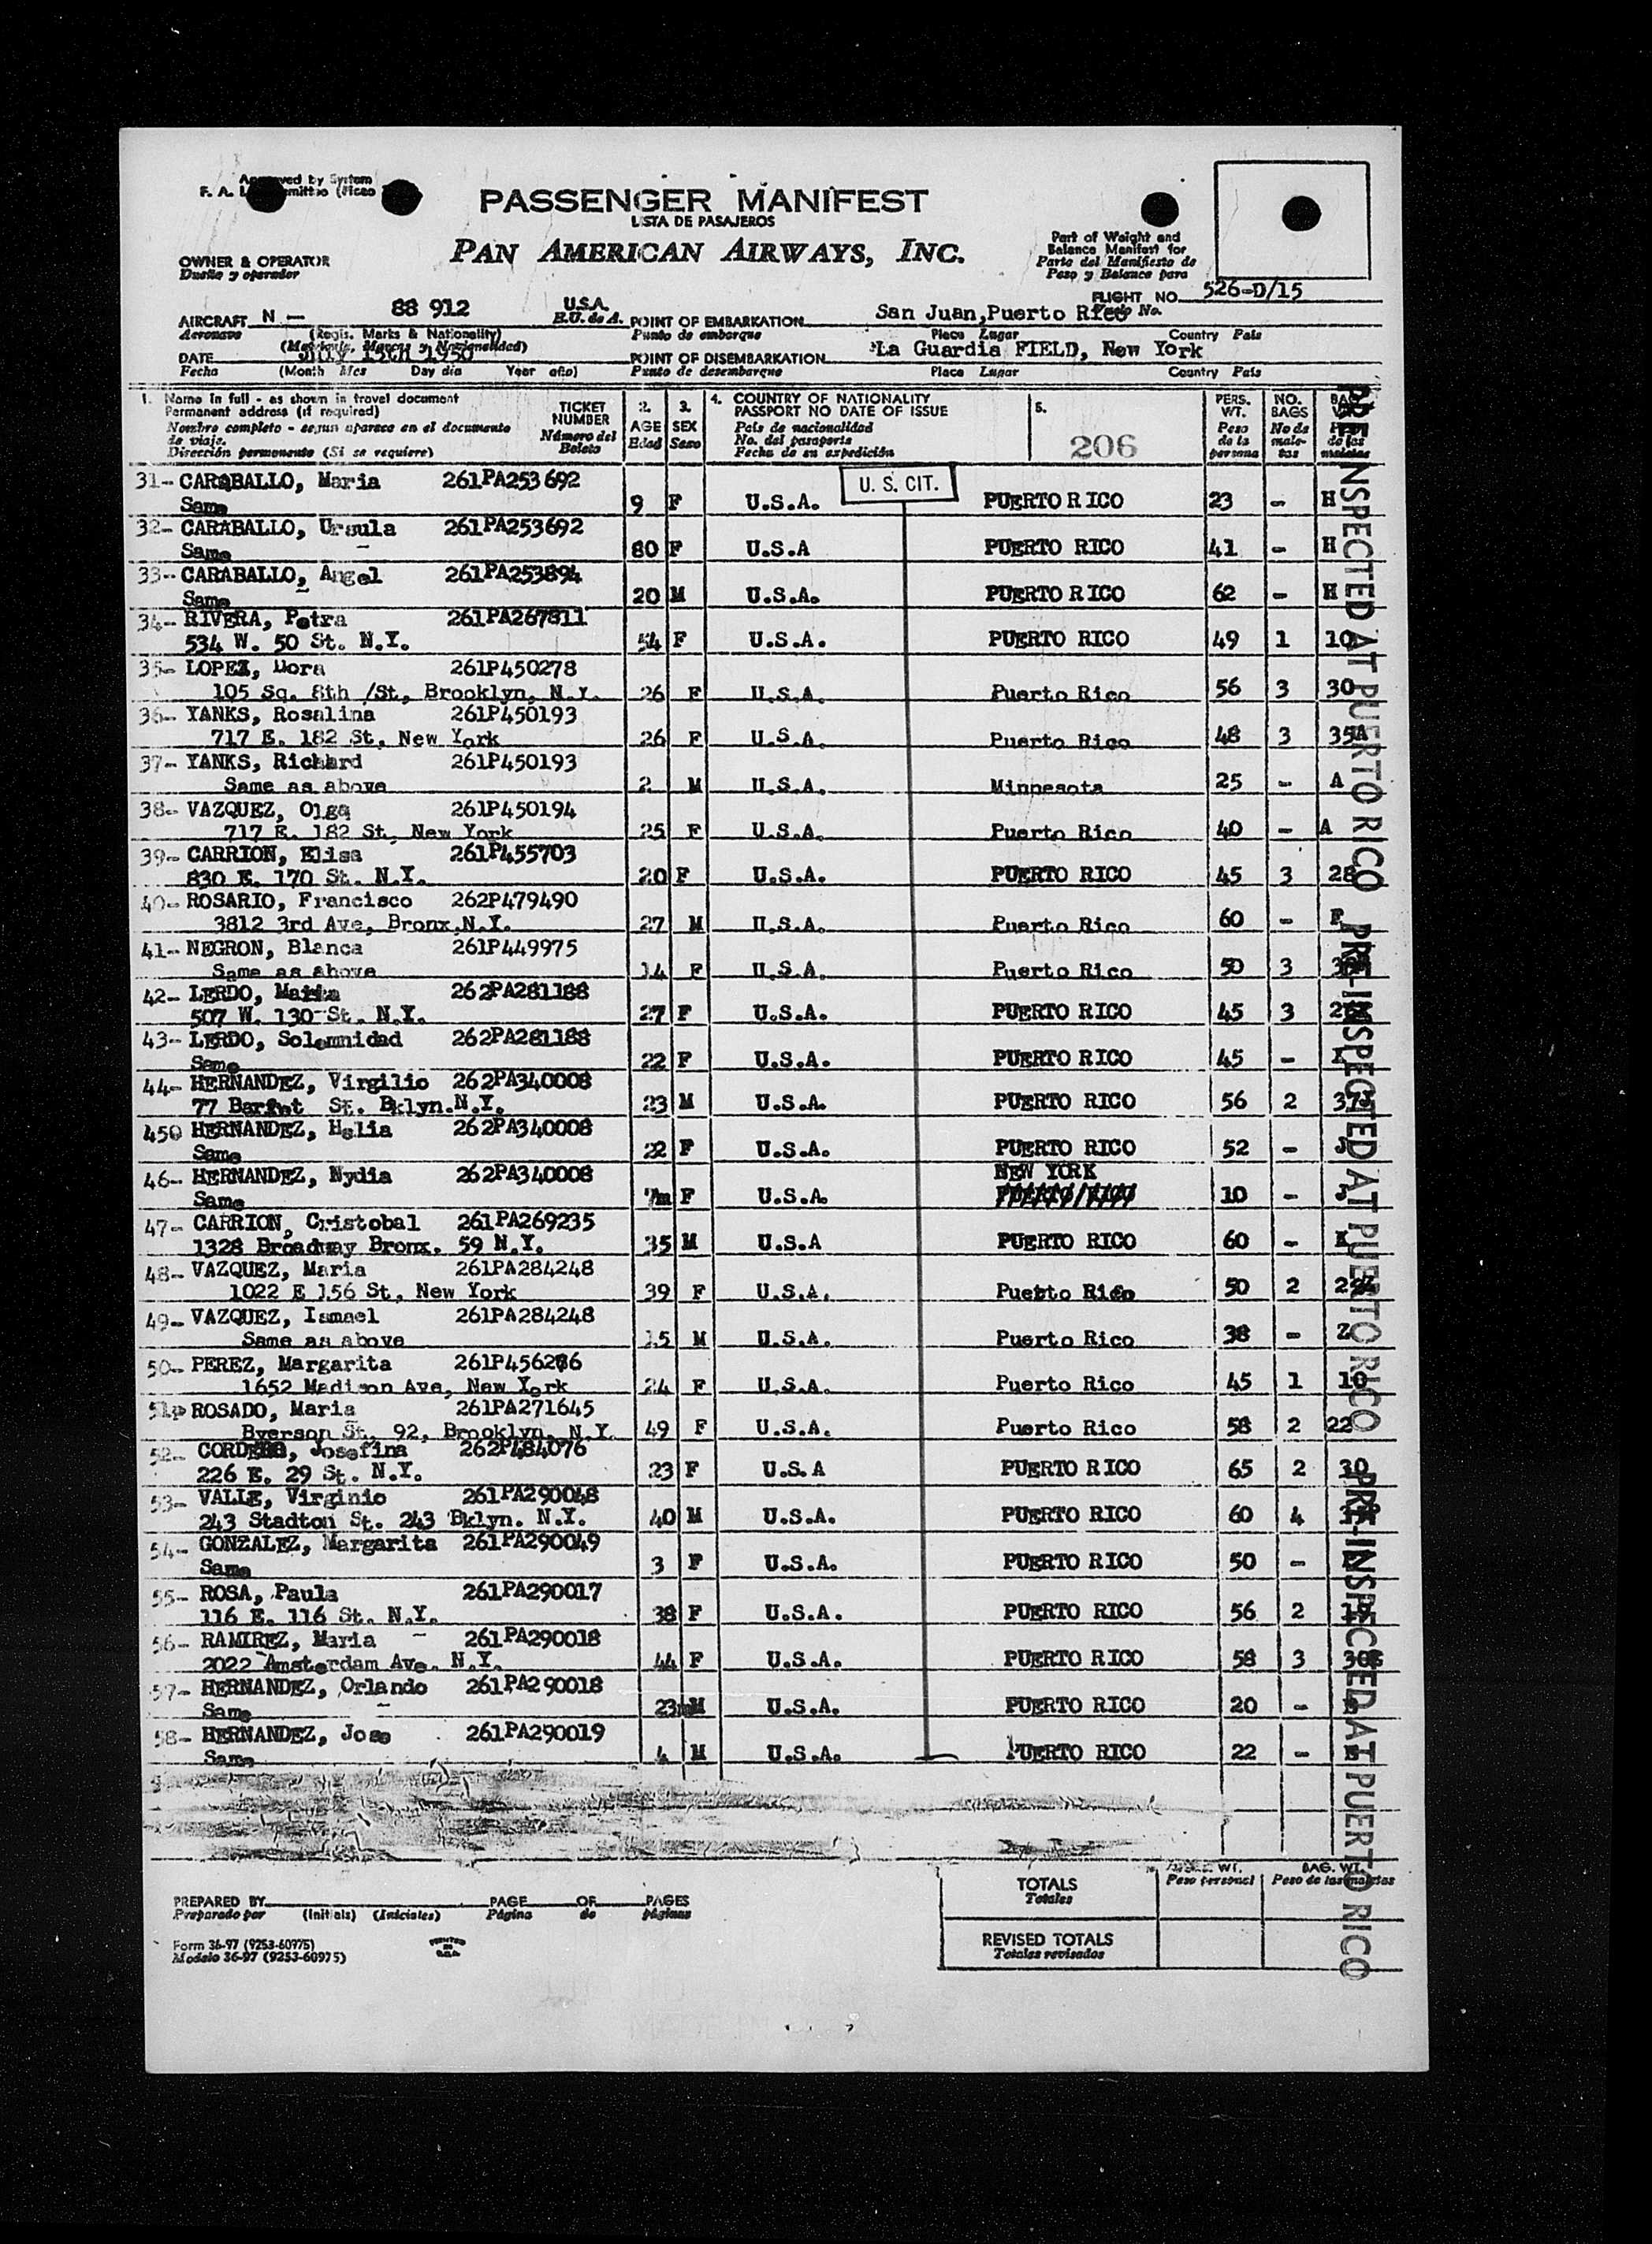 Approved by System
F. A. L. Committee (Ficao
PASSENGER MANIFEST
LISTA DE PASAJEROS
PAN AMERICAN AIRWAYS, INC.
OWNER & OPERATOR
Dueño y operador
Part of Weight and
Balance Manifest for
Parte del Manifiesto de
Peso y Balance para
FLIGHT NO. 526-D/15
Vuelo No.
AIRCRAFT N — 88 912 U.S.A.
Aeronave (Regis. Marks & Nationality) E.U. de A.
(Matricula, Marcas y Nacionalidad)
POINT OF EMBARKATION San Juan, Puerto Rico
Punto de embarque Place Lugar Country Pais
DATE July 15th 1950
Fecha (Month Mes Day dia Year año)
POINT OF DISEMBARKATION La Guardia FIELD, New York
Punto de desembarque Place Lugar Country Pais
1. Name in full - as shown in travel document
Permanent address (if required)
Nombre completo - segun aparece en el documento
de viaje.
Dirección permanente (Si se requiere)
TICKET
NUMBER
Número del
Boleto
2.
AGE
Edad
3.
SEX
Sexo
4. COUNTRY OF NATIONALITY
PASSPORT NO DATE OF ISSUE
Pais de nacionalidad
No. del pasaporte
Fecha de su expedición
5.
206
PERS.
WT.
Peso
de la
persona
NO.
BAGS
No de
male-
tas
BAG
de las
maletas
U. S. CIT.
31- CARABALLO, Maria 261PA253692
Same 9 F U.S.A. PUERTO RICO 23 - H
32- CARABALLO, Ursula 261PA253692
Same 80 F U.S.A PUERTO RICO 41 - H
33- CARABALLO, Angel 261PA253894
Same 20 M U.S.A. PUERTO RICO 62 - H
34- RIVERA, Petra 261PA267811
534 W. 50 St. N.Y. 54 F U.S.A. PUERTO RICO 49 1 10
35- LOPEZ, Dora 261P450278
105 So. 8th /St, Brooklyn, N.Y. 26 F U.S.A. Puerto Rico 56 3 30
36- YANKS, Rosalina 261P450193
717 E. 182 St, New York 26 F U.S.A. Puerto Rico 48 3 35A
37- YANKS, Richard 261P450193
Same as above 2 M U.S.A. Minnesota 25 - A
38- VAZQUEZ, Olga 261P450194
717 E. 182 St, New York 25 F U.S.A. Puerto Rico 40 - A
39- CARRION, Elisa 261P455703
830 E. 170 St. N.Y. 20 F U.S.A. PUERTO RICO 45 3 28
40- ROSARIO, Francisco 262P479490
3812 3rd Ave, Bronx,N.Y. 27 M U.S.A. Puerto Rico 60 - F
41- NEGRON, Blanca 261P449975
Same as above 14 F U.S.A. Puerto Rico 50 3
42- LERDO, Maria 262PA281188
507 W. 130 St. N.Y. 27 F U.S.A. PUERTO RICO 45 3
43- LERDO, Solemnidad 262PA281188
Same 22 F U.S.A. PUERTO RICO 45 -
44- HERNANDEZ, Virgilio 262PA340008
77 St. Bklyn.N.Y. 23 M U.S.A. PUERTO RICO 56 2 37J
450 HERNANDEZ, Helia 262PA340008
Same 22 F U.S.A. PUERTO RICO 52 - J
NEW YORK
46- HERNANDEZ, Nydia 262PA340008
Same 7m F U.S.A. 10 - J
47- CARRION, Cristobal 261PA269235
1328 Broadway Bronx. 59 N.Y. 35 M U.S.A PUERTO RICO 60 - K
48- VAZQUEZ, Maria 261PA284248
1022 E 156 St, New York 39 F U.S.A. Puebto Rico 50 2
49- VAZQUEZ, Ismael 261PA284248
Same as above 15 M U.S.A. Puerto Rico 38 - Z
50- PEREZ, Margarita 261P456286
1652 Madison Ave, New York 24 F U.S.A. Puerto Rico 45 1 10
51p ROSADO, Maria 261PA271645
Byerson St. 92, Brooklyn, N.Y. 49 F U.S.A. Puerto Rico 58 2 22
52- CORDERO, Josefina 262P484076
226 E. 29 St. N.Y. 23 F U.S.A PUERTO RICO 65 2 30
53- VALLE, Virginio 261PA290048
243 Stadton St. 243 Bklyn. N.Y. 40 M U.S.A. PUERTO RICO 60 4
54- GONZALEZ, Margarita 261PA290049
Same 3 F U.S.A. PUERTO RICO 50 -
55- ROSA, Paula 261PA290017
116 E. 116 St. N.Y. 38 F U.S.A. PUERTO RICO 56 2
56- RAMIREZ, Maria 261PA290018
2022 Amsterdam Ave. N.Y. 44 F U.S.A. PUERTO RICO 58 3 30S
57- HERNANDEZ, Orlando 261PA290018
Same 23m M U.S.A. PUERTO RICO 20 -
58- HERNANDEZ, Jose 261PA290019
Same 4 M U.S.A. PUERTO RICO 22 -
PRE-INSPECTED AT PUERTO RICO PRE-INSPECTED AT PUERTO RICO PRE-INSPECTED AT PUERTO RICO
TOTALS
Totales
WT.
Peso personal
BAG. WT.
Peso de las maletas
REVISED TOTALS
Totales revisados
PREPARED BY PAGE OF PAGES
Preparado por (Initials) (Iniciales) Página de páginas
Form 36-97 (9253-60975)
Modelo 36-97 (9253-60975)
PRINTED
IN
U.S.A.